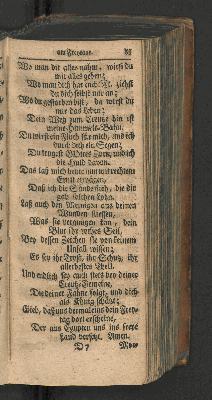 am Freytage. 85
Wo man dir alles nahm, wirst du
mir alles geben;
Wo man dich hat entblößt, ziehst
du dich selbst mir an;
Wo du gestorben bist, da wirst du
mir das Leben;
Dein Weg zum Creutze hin ist
meine Himmels-Bahn.
Du wirst ein Fluch für mich, und ich
durch dich ein Segen;
Du trugest GOttes Zorn, und ich
die Huld davon.
Das laß mich heute nun mit rechtem
Ernst erwägen,
Daß ich die Sünde flieh, die dir
gab solchen Lohn.
Laß auch den Meinigen aus deinen
Wunden fliessen,
Was sie vergnügen kan, dein
Blut ihr rothes Seil,
Bey dessen Zeichen sie von keinem
Unfall wissen;
Es sey ihr Trost, ihr Schutz, ihr
allerbestes Theil.
Und endlich sey auch stets bey deiner
Creutz-Gemeine,
Die deiner Fahne folgt, und dich
als König schätzt;
Gieb, daß uns dermaleins dein Frey-
tag dort erscheine,
Der aus Egypten uns ins freye
Land versetzt. Amen.
D 7